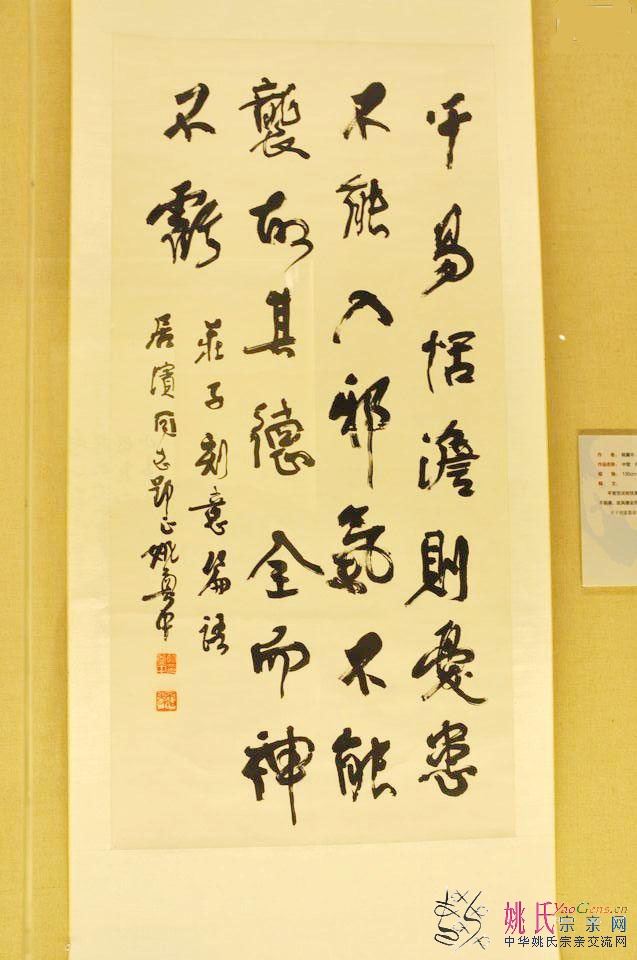 平易恬澹則憂患
不能入邪氣不能
襲故其德全而神
不虧
莊子刻意篇語
居濱同志郢正姚奠中
姚氏宗亲网
YaoGens.cn
中华姚氏宗亲交流网